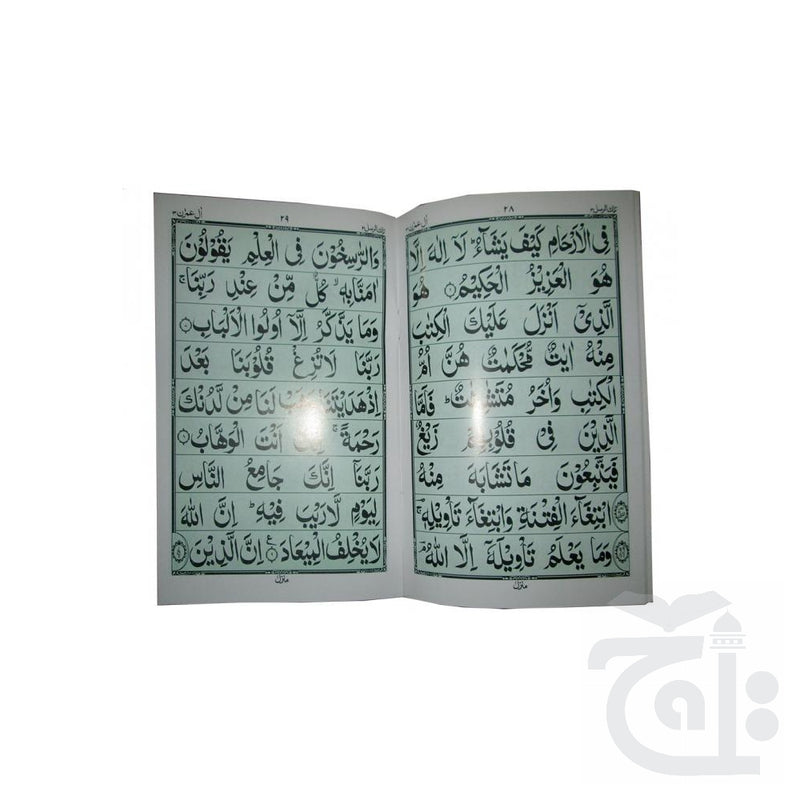 تلك الرسل ٣
٢٨
اٰل عمرٰن ٣
فِی الْاَرْحَامِ كَیْفَ یَشَآءُ ؕ لَاۤ اِلٰهَ اِلَّا
هُوَ الْعَزِیْزُ الْحَكِیْمُ ۝ هُوَ
الَّذِیْۤ اَنْزَلَ عَلَیْكَ الْكِتٰبَ
مِنْهُ اٰیٰتٌ مُّحْكَمٰتٌ هُنَّ اُمُّ
الْكِتٰبِ وَاُخَرُ مُتَشٰبِهٰتٌ ؕ فَاَمَّا
الَّذِیْنَ فِیْ قُلُوْبِهِمْ زَیْغٌ
فَیَتَّبِعُوْنَ مَا تَشَابَهَ مِنْهُ
ابْتِغَآءَ الْفِتْنَةِ وَابْتِغَآءَ تَاْوِیْلِهٖ ۚ
وَمَا یَعْلَمُ تَاْوِیْلَهٗۤ اِلَّا اللّٰهُ ۘ
منزل
تلك الرسل ٣
٢٩
اٰل عمرٰن ٣
وَالرّٰسِخُوْنَ فِی الْعِلْمِ یَقُوْلُوْنَ
اٰمَنَّا بِهٖ ۙ كُلٌّ مِّنْ عِنْدِ رَبِّنَا ۚ
وَمَا یَذَّكَّرُ اِلَّاۤ اُولُوا الْاَلْبَابِ ۝
رَبَّنَا لَا تُزِغْ قُلُوْبَنَا بَعْدَ
اِذْ هَدَیْتَنَا وَهَبْ لَنَا مِنْ لَّدُنْكَ
رَحْمَةً ۚ اِنَّكَ اَنْتَ الْوَهَّابُ ۝
رَبَّنَاۤ اِنَّكَ جَامِعُ النَّاسِ
لِیَوْمٍ لَّا رَیْبَ فِیْهِ ؕ اِنَّ اللّٰهَ
لَا یُخْلِفُ الْمِیْعَادَ ۝ اِنَّ الَّذِیْنَ
منزل